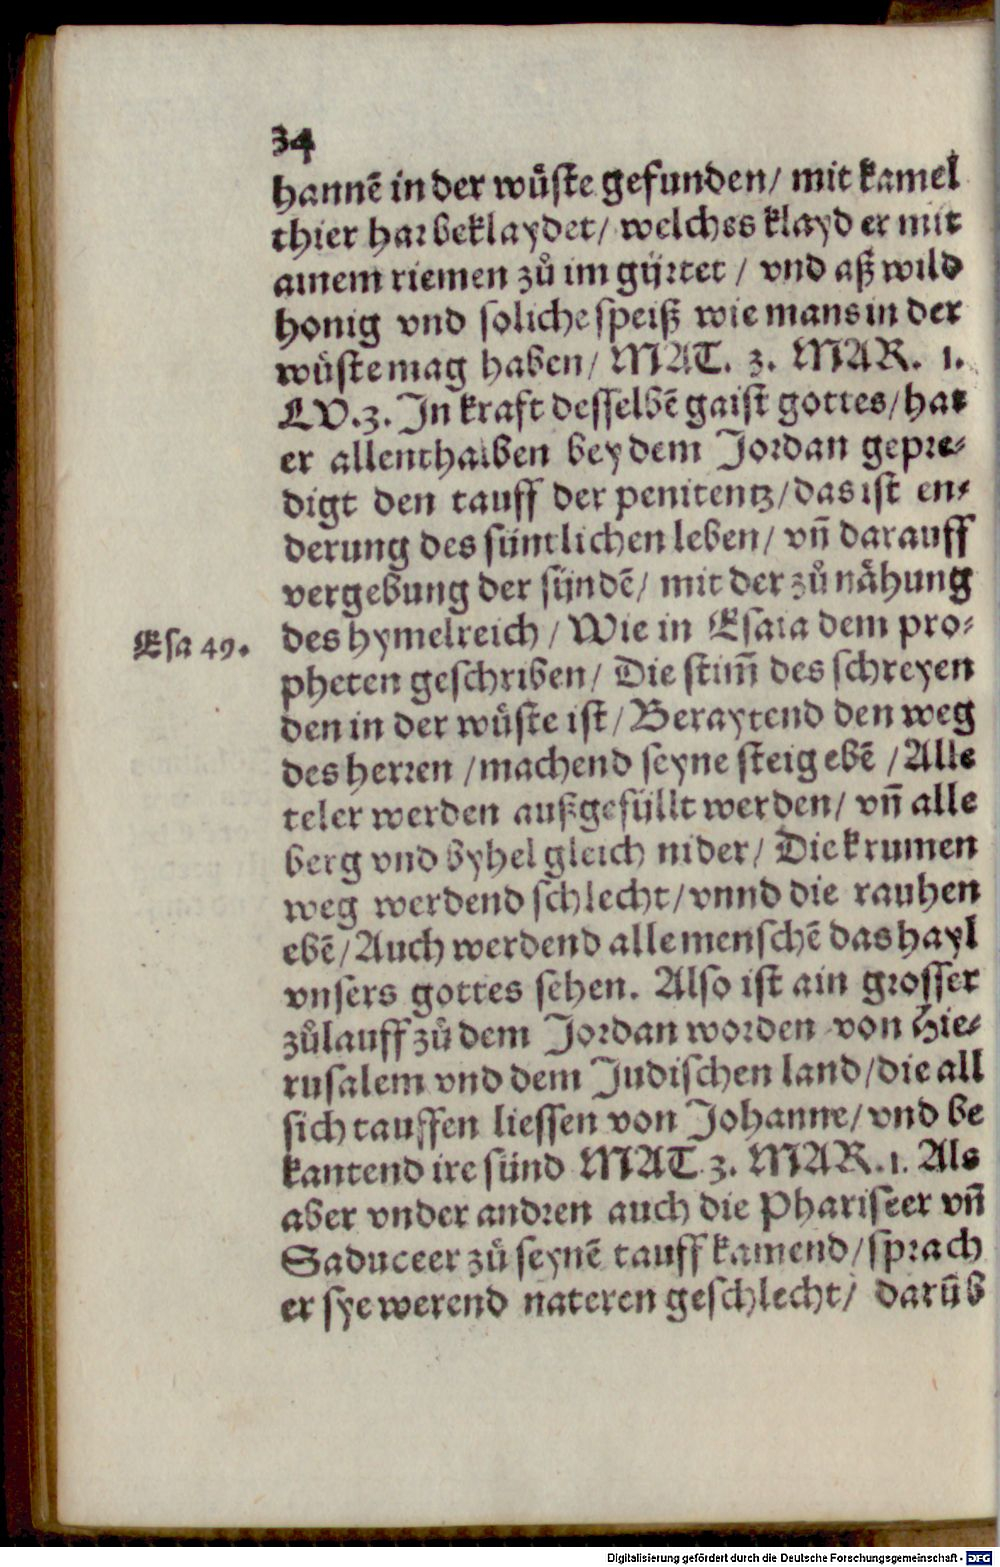 34
hannē in der wuͤste gefunden/ mit kamel
thier har beklaydet/ welches klayd er mit
ainem riemen zuͦ im gyͤrtet / vnd aß wild
honig vnd soliche speiß wie mans in der
wuͤste mag haben/ MAT. 3. MAR. 1.
LV.3. In kraft desselbē gaist gottes/ hat
er allenthalben bey dem Jordan gepre⸗
digt den tauff der penitentz/ das ist en⸗
derung des süntlichen leben/ vn̄ darauff
vergebung der syndē/ mit der zuͦ naͤhung
Esa 49. des hymelreich / Wie in Esaia dem pro⸗
pheten geschriben/ Die stim̄ des schreyen
den in der wuͤste ist/ Beraytend den weg
des herren /machend seyne steig ebē / Alle
teler werden außgefyllt werden/ vn̄ alle
berg vnd byhel gleich nider/ Die krumen
weg werdend schlecht/ vnnd die rauhen
ebē/ Auch werdend alle menschē das hayl
vnsers gottes sehen. Also ist ain grosser
zuͦlauff zuͦ dem Jordan worden von Hie⸗
rusalem vnd dem Judischen land/ die all
sich tauffen liessen von Johanne/ vnd be
kantend ire sünd MAT. 3. MAR. 1. Als
aber vnder andren auch die Phariseer vn̄
Saduceer zuͦ seynē tauff kamend/ sprach
er sye werend nateren geschlecht/ darüb
Digitalisierung gefördert durch die Deutsche Forschungsgemeinschaft - DFG